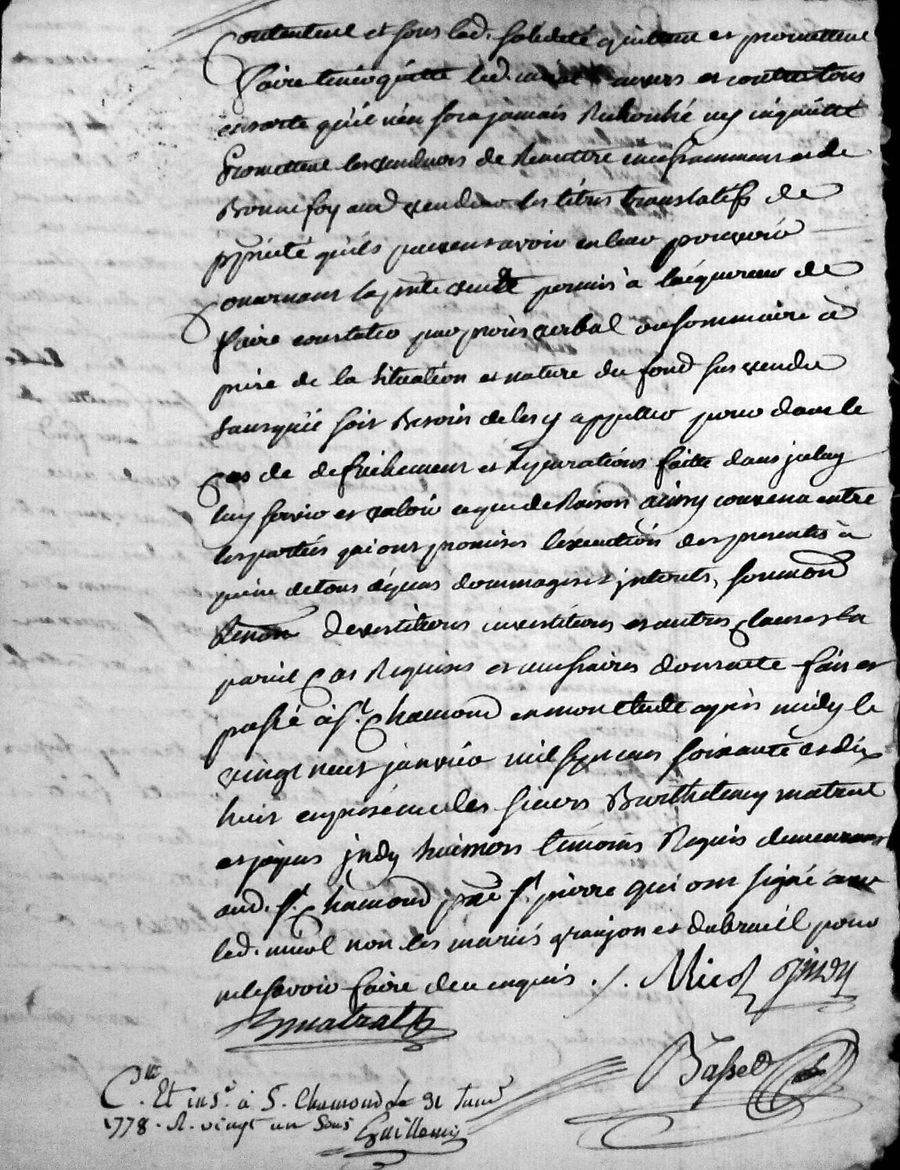 contentent et sous lad. solidité quittent et promettent
faire tenir quitte led. micol envers et contre tous
ensorte qu'il n'en sera jamais Recherché ny inquietté
promettent les vendeurs de Remettre incessamment et de
Bonne foy aud. vendeur les titres translatifs de
ppriété qu'ils peuvent avoir en leur pouvoir
concernant la pnte vente permis à l'acquereur de
faire constater par procès verbal ou sommaire à
prise de la situation et nature du fond sus vendu
sans qu'il soit Besoin de les y appeller pour dans le
cas de defrichement et Reparations faitte dans iceluy
luy servir et valoir ce que de Raison ainsy convenu entre
les parties qui ont promises l'execution des presentes à
peine de tous dépens dommages et interets, soumon
Renon devestitions investitions et autres clauses en
pareil cas Requises et necessaires dont acte fait et
passé à St. Chamond en mon etude après midy le
vingt neuf janvier mil sept cens soixante et dix
huit en présence des sieurs Barthelemy matrat
et jndy témoins Requis demeurant
aud. St. Chamond psse St. pierre qui ont signé avec
led. micol non les mariés granjon et dubreuil pour
ne le savoir faire de ce enquis ./. Micol Jindy
Bmatrat
Basset
Clle. Et ins.é à S. Chamond Le 31 Janv.
1778. R. vingt un Sous Guillemin